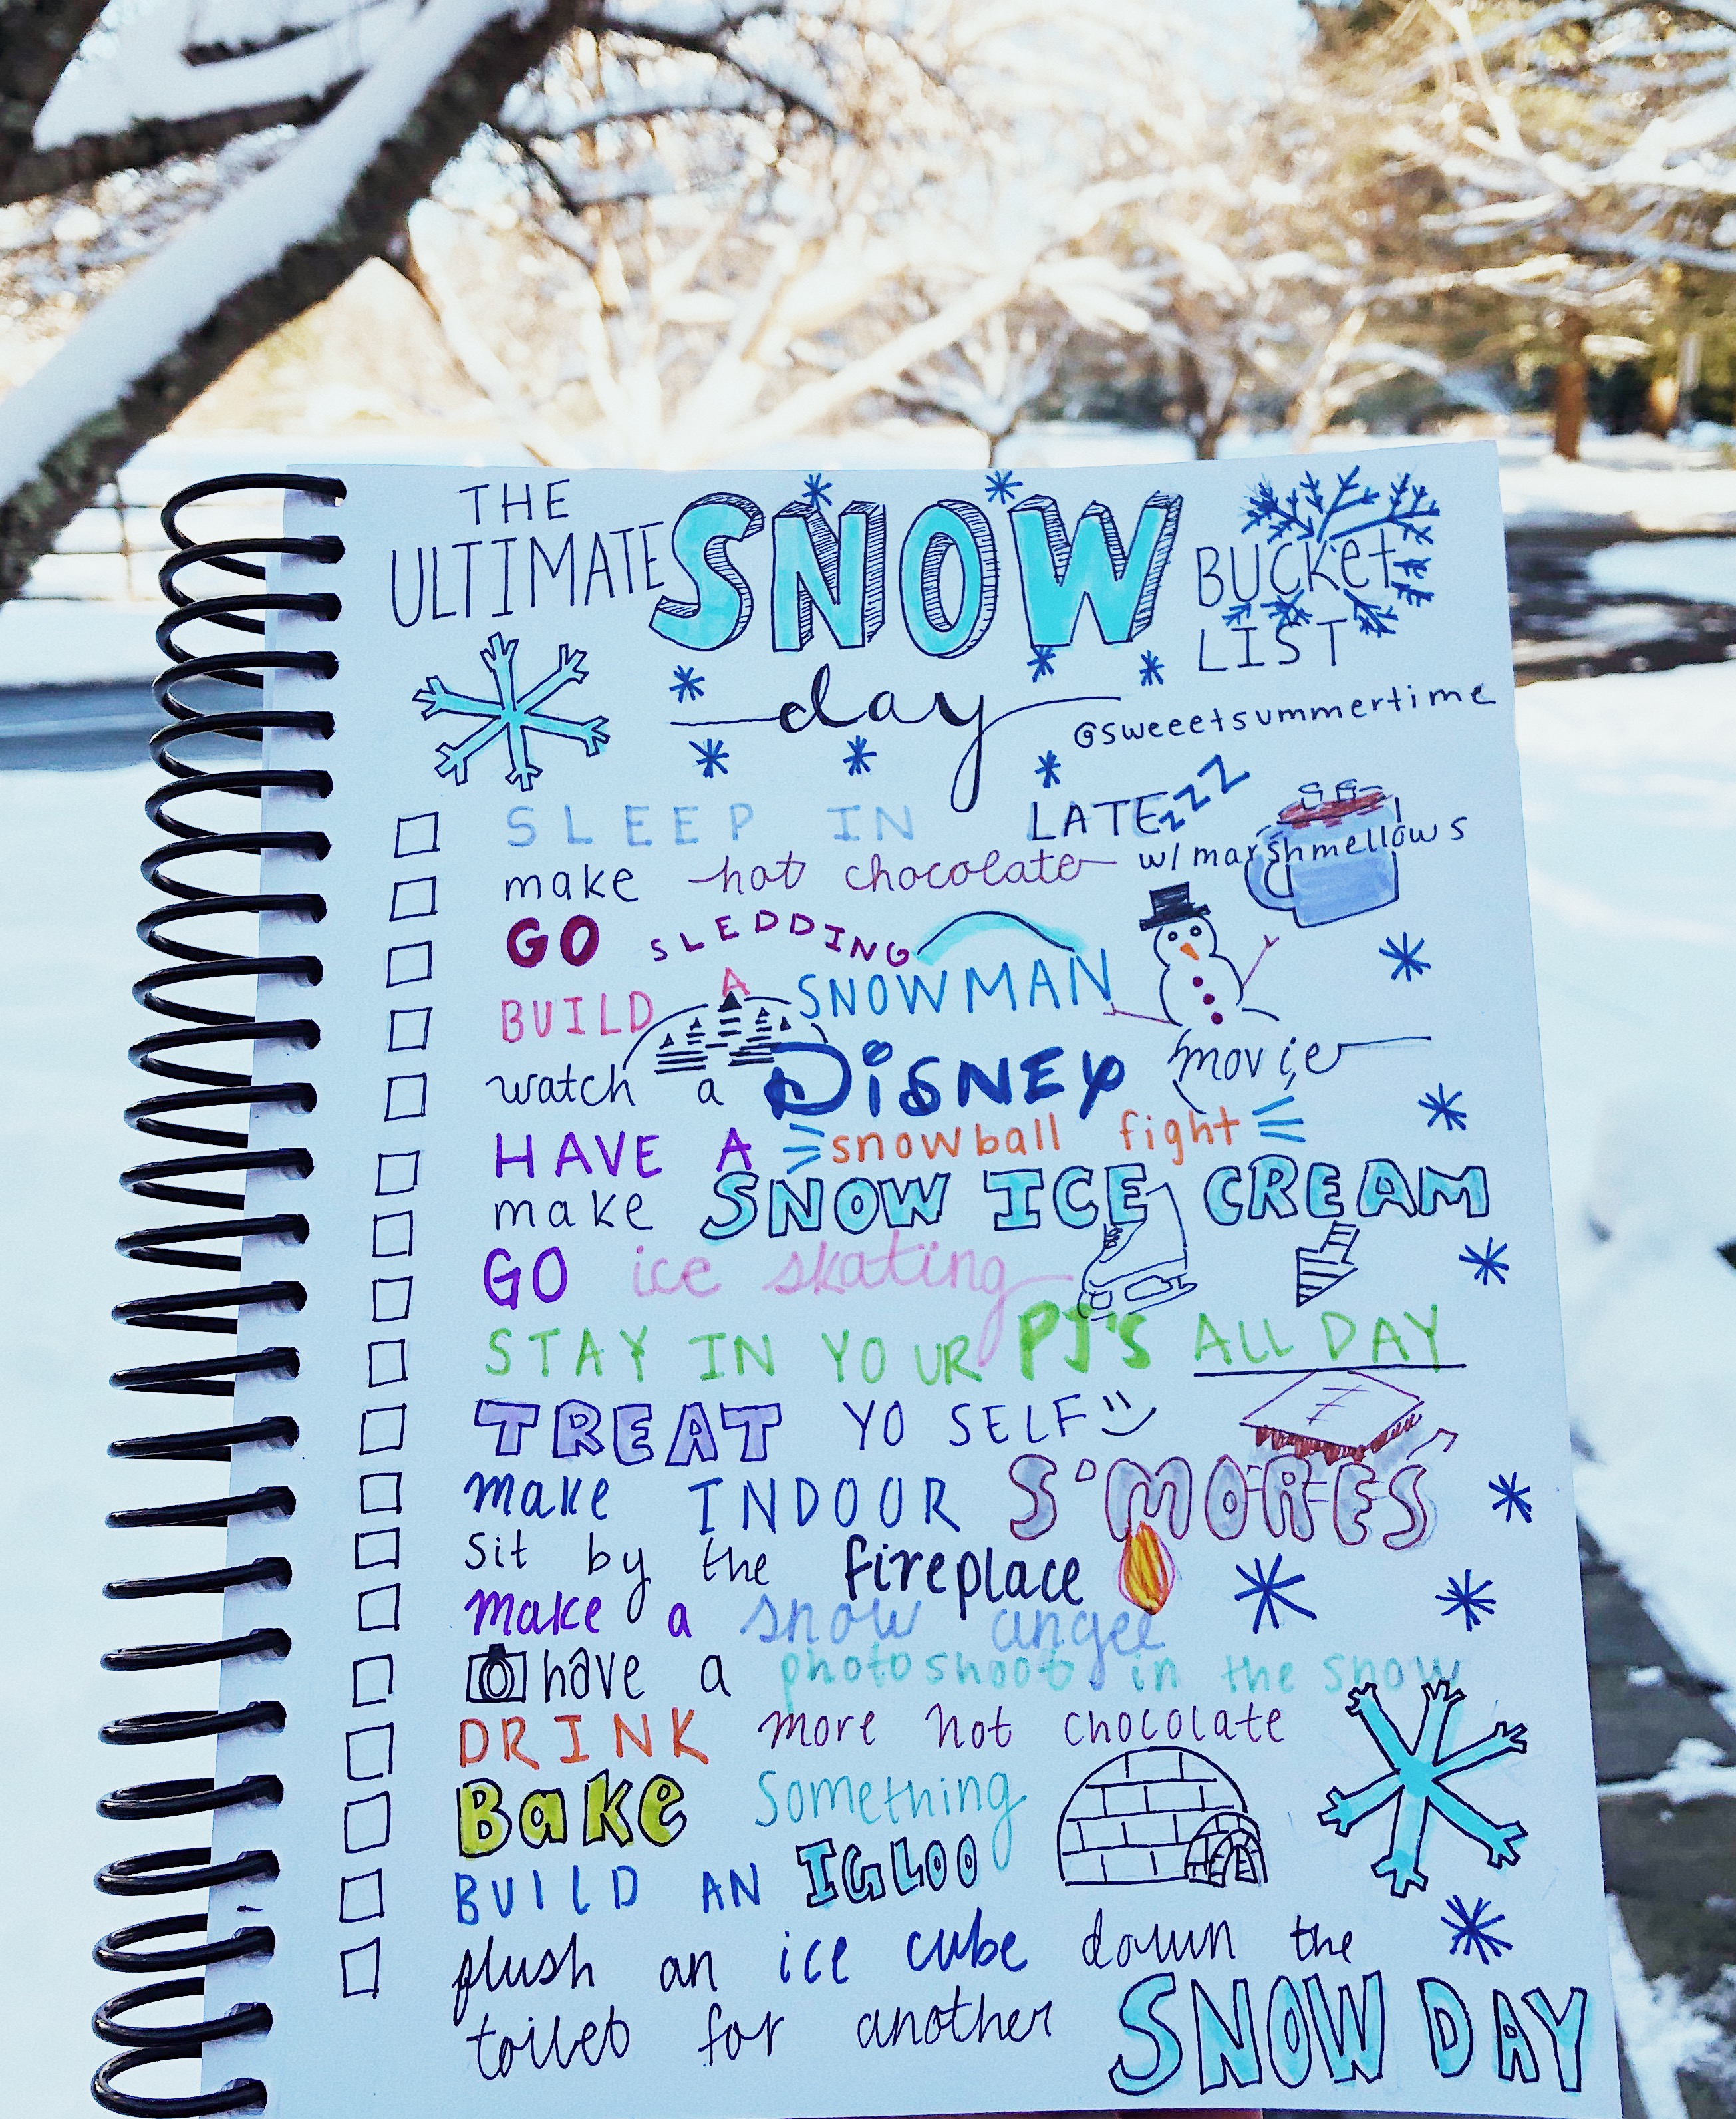 THE
ULTIMATE SNOW BUCKET
LIST
day
@sweeetsummertime
SLEEP IN LATE zzz
make hot chocolate w/marshmellows
GO SLEDDING
BUILD A SNOWMAN
watch a DiSNEY movie
HAVE A snowball fight
make SNOW ICE CREAM
GO ice skating
STAY IN YOUR PJ'S ALL DAY
TREAT YO SELF
make INDOOR S'MORES
sit by the fireplace
make a snow angel
have a photoshoot in the snow
DRINK more hot chocolate
Bake Something
BUILD AN IGLOO
flush an ice cube down the
toilet for another SNOW DAY